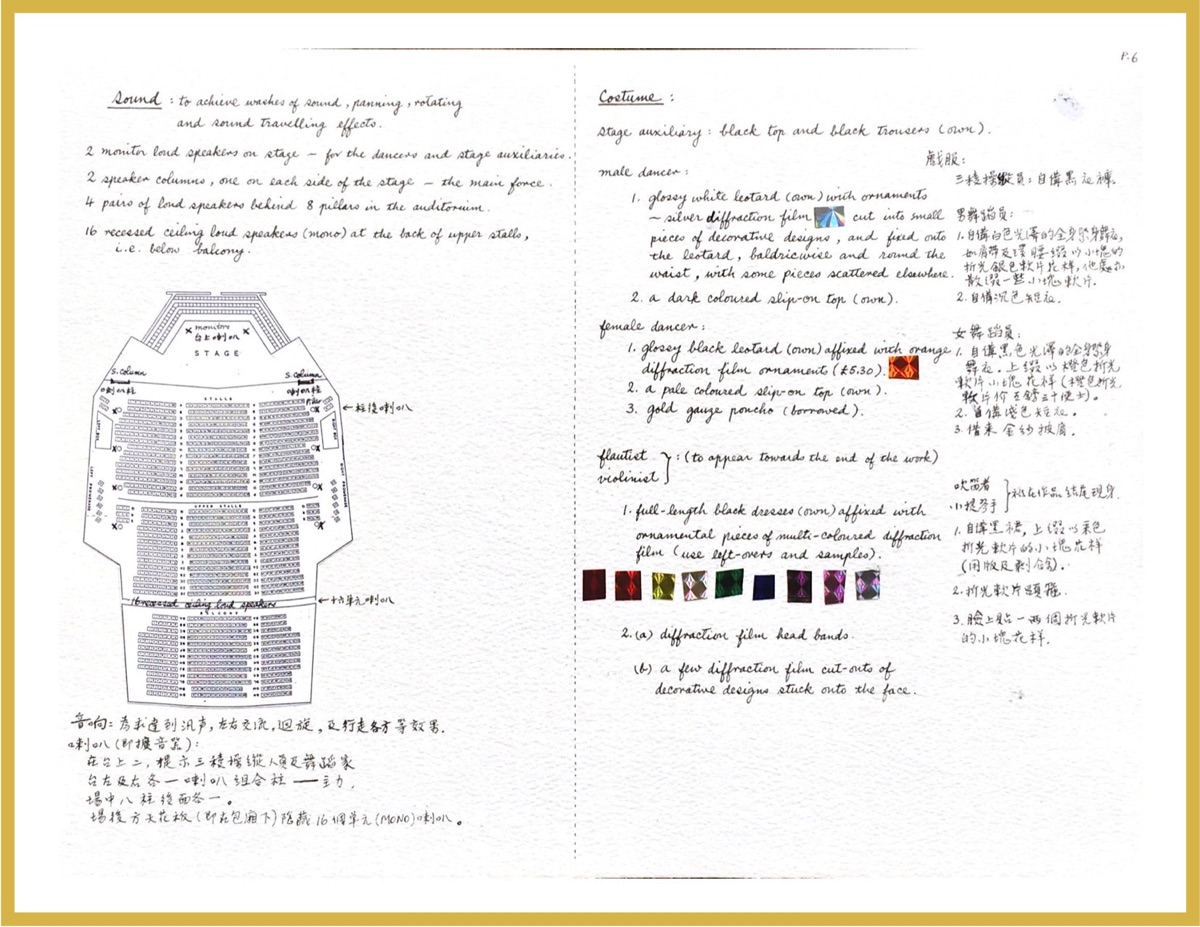 P.6
Sound : to achieve washes of sound, panning, rotating
and sound travelling effects.
2 monitor loud speakers on stage — for the dancers and stage auxiliaries.
2 speaker columns, one on each side of the stage — the main force.
4 pairs of loud speakers behind 8 pillars in the auditorium.
16 recessed ceiling loud speakers (mono) at the back of upper stalls,
i.e. below balcony.
monitors
台上喇叭
STAGE
S. Column
喇叭柱
S. Column
喇叭柱
STALLS
Pillar
←柱後喇叭
UPPER STALLS
16 recessed ceiling loud speakers
←十六單元喇叭
BALCONY
音响: 為求達到汎声, 左右交流, 迴旋, 及行走各方等效果.
喇叭 (即擴音器):
在台上二, 提示三棱操縱人員及舞蹈家
台左及右各一喇叭組合柱 — 主力.
場中八柱後面各一。
場後方天花板 (即在包廂下) 隐藏16個單元 (MONO) 喇叭。
Costume :
stage auxiliary : black top and black trousers (own).
male dancer :
1. glossy white leotard (own) with ornaments
~ silver diffraction film cut into small
pieces of decorative designs, and fixed onto
the leotard, baldricwise and round the
waist, with some pieces scattered elsewhere.
2. a dark coloured slip-on top (own).
female dancer :
1. glossy black leotard (own) affixed with orange
diffraction film ornaments (£5.30).
2. a pale coloured slip-on top (own).
3. gold gauze poncho (borrowed).
flautist
violinist } : (to appear towards the end of the work)
1. full-length black dresses (own) affixed with
ornamental pieces of multi-coloured diffraction
film (use left-overs and samples).
2. (a) diffraction film head bands.
(b) a few diffraction film cut-outs of
decorative designs stuck onto the face.
戲服:
三棱操縱員: 自備黑衣褲.
男舞蹈員:
1. 自備白色光澤的全身緊身舞衣,
如肩帶及環腰綴以小塊的
折光銀色軟片花样, 他處亦
散綴一些小塊軟片.
2. 自備沉色短衣.
女舞蹈員:
1. 自備黑色光澤的全身緊身
舞衣. 上綴以橙色折光
軟片小塊花样 (橙色折光
軟片价五鎊三十便士).
2. 自備淺色短衣.
3. 借來金紗披肩.
吹笛者
小提琴手 } 祇在作品結尾現身.
1. 自備黑裙, 上綴以彩色
折光軟片的小塊花样
(用版及剩合的).
2. 折光軟片頭箍.
3. 臉上貼一兩個折光軟片
的小塊花样.